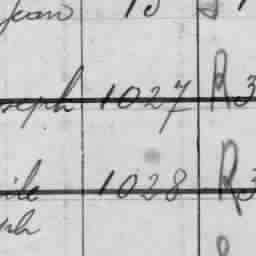 Jean 13
seph 1027 R 3
ile 1028 R 3
ph